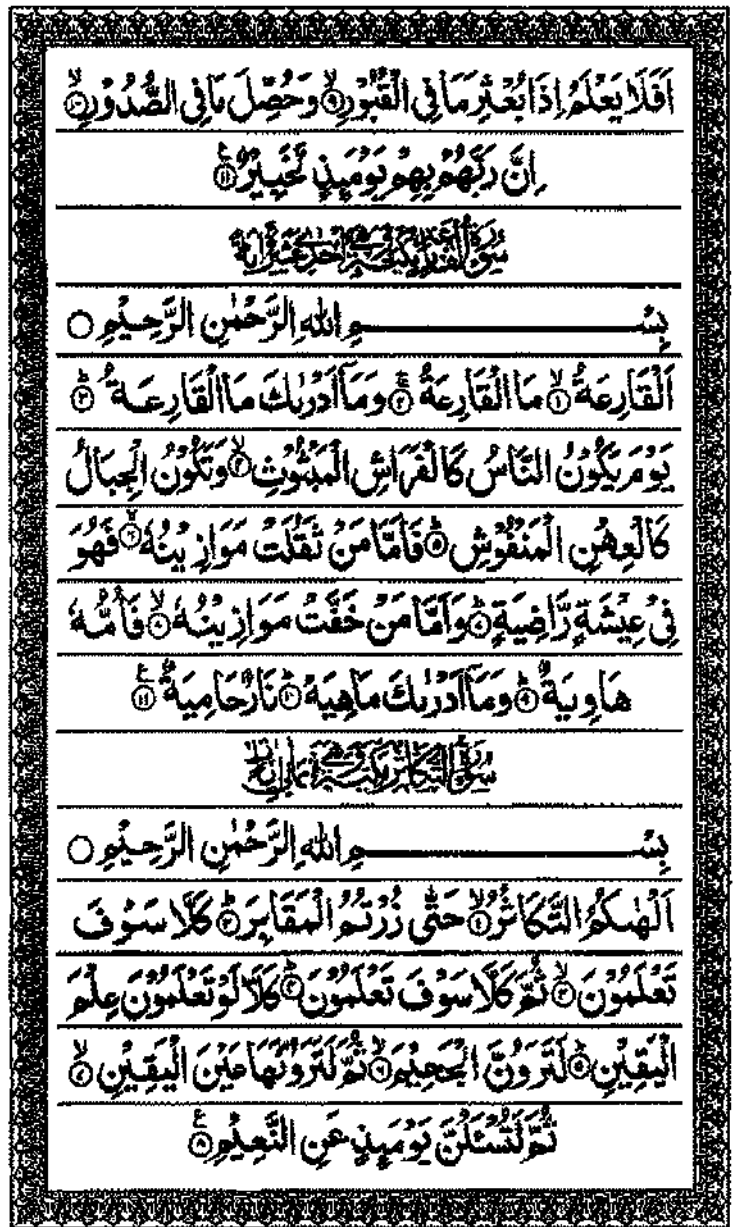 اَفَلَا يَعْلَمُ اِذَا بُعْثِرَ مَا فِي الْقُبُوْرِ ۙ﴿۹﴾ وَحُصِّلَ مَا فِي الصُّدُوْرِ ۙ﴿۱۰﴾
اِنَّ رَبَّهُمْ بِهِمْ يَوْمَئِذٍ لَّخَبِيْرٌ ﴿۱۱﴾
سُوْرَةُ الْقَارِعَةِ مَكِّيَّةٌ وَّهِيَ اِحْدٰى عَشْرَةَ اٰيَةً
بِسْمِ اللّٰهِ الرَّحْمٰنِ الرَّحِيْمِ ۝
اَلْقَارِعَةُ ۙ﴿۱﴾ مَا الْقَارِعَةُ ۚ﴿۲﴾ وَمَآ اَدْرٰىكَ مَا الْقَارِعَةُ ؕ﴿۳﴾
يَوْمَ يَكُوْنُ النَّاسُ كَالْفَرَاشِ الْمَبْثُوْثِ ۙ﴿۴﴾ وَتَكُوْنُ الْجِبَالُ
كَالْعِهْنِ الْمَنْفُوْشِ ؕ﴿۵﴾ فَاَمَّا مَنْ ثَقُلَتْ مَوَازِيْنُهٗ ۙ﴿۶﴾ فَهُوَ
فِيْ عِيْشَةٍ رَّاضِيَةٍ ؕ﴿۷﴾ وَاَمَّا مَنْ خَفَّتْ مَوَازِيْنُهٗ ۙ﴿۸﴾ فَاُمُّهٗ
هَاوِيَةٌ ؕ﴿۹﴾ وَمَآ اَدْرٰىكَ مَاهِيَهْ ؕ﴿۱۰﴾ نَارٌ حَامِيَةٌ ﴿۱۱﴾
سُوْرَةُ التَّكَاثُرِ مَكِّيَّةٌ وَّهِيَ ثَمَانِيْ اٰيَاتٍ
بِسْمِ اللّٰهِ الرَّحْمٰنِ الرَّحِيْمِ ۝
اَلْهٰىكُمُ التَّكَاثُرُ ۙ﴿۱﴾ حَتّٰى زُرْتُمُ الْمَقَابِرَ ؕ﴿۲﴾ كَلَّا سَوْفَ
تَعْلَمُوْنَ ۙ﴿۳﴾ ثُمَّ كَلَّا سَوْفَ تَعْلَمُوْنَ ؕ﴿۴﴾ كَلَّا لَوْ تَعْلَمُوْنَ عِلْمَ
الْيَقِيْنِ ؕ﴿۵﴾ لَتَرَوُنَّ الْجَحِيْمَ ۙ﴿۶﴾ ثُمَّ لَتَرَوُنَّهَا عَيْنَ الْيَقِيْنِ ۙ﴿۷﴾
ثُمَّ لَتُسْئَلُنَّ يَوْمَئِذٍ عَنِ النَّعِيْمِ ﴿۸﴾